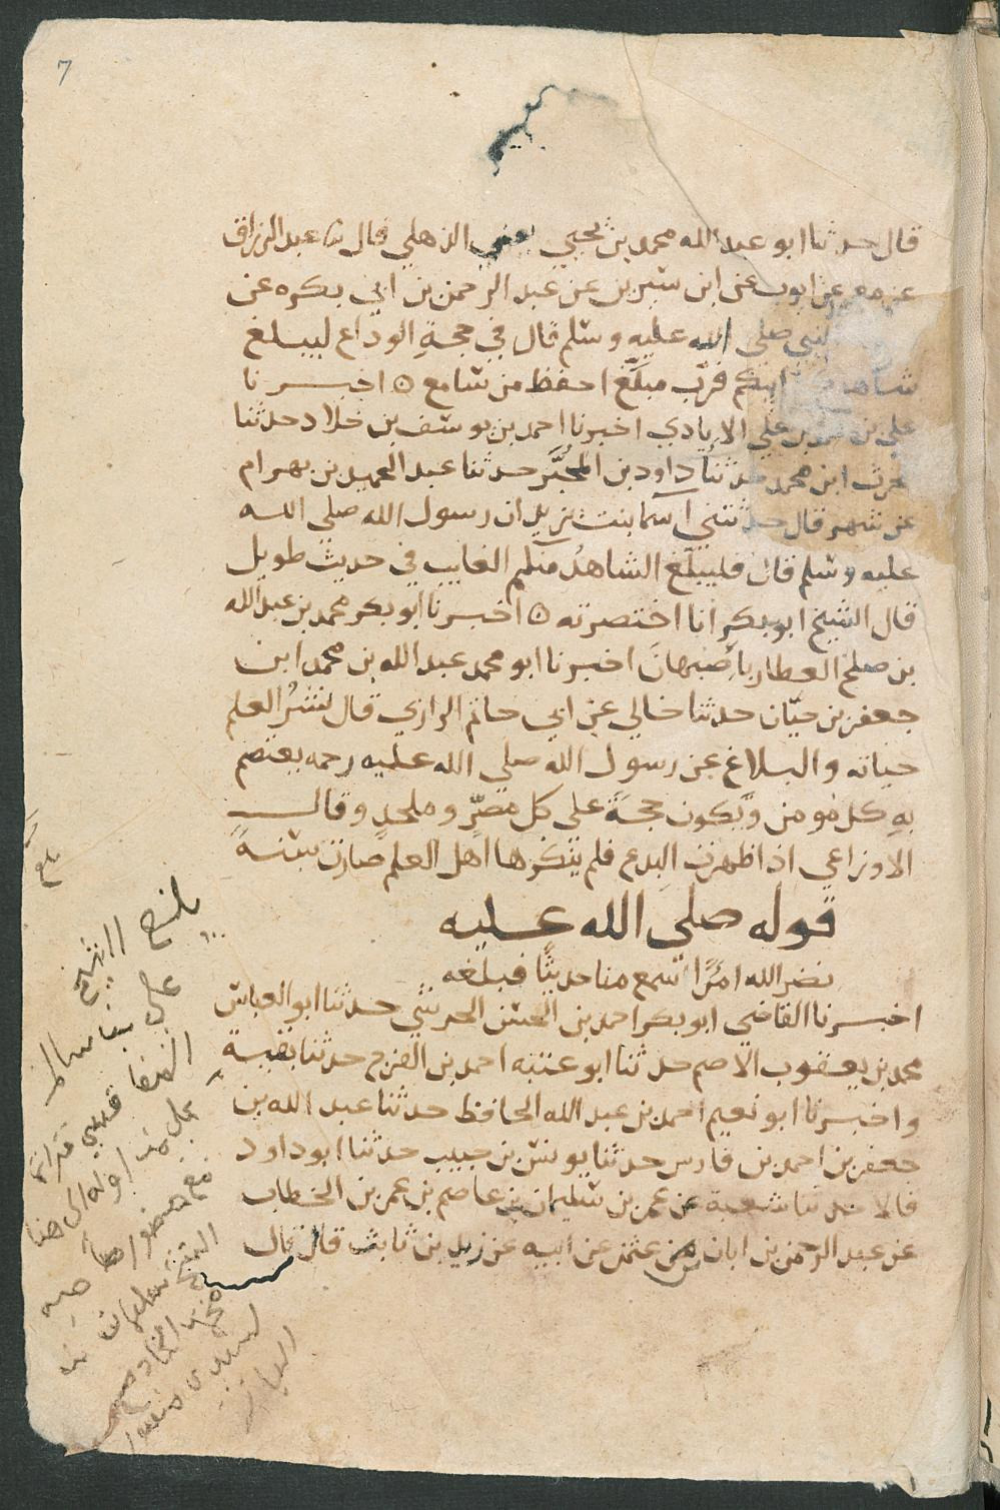 7
قال حدثنا ابو عبد الله محمد بن يحيى يعني الذهلي قال ثنا عبد الرزاق
عن معمر عن ايوب عن ابن سيرين عن عبد الرحمن بن ابي بكره عن
النبي صلى الله عليه وسلم قال في حجةِ الوداع ليبلغ
شاهدكم غايبكم فرُبّ مبلَّغ احفظ من سامع ⊙ اخبرنا
علي بن علي الايادي اخبرنا احمد بن يوسف بن خلاد حدثنا
الحرث ابن محمد حدثنا داود بن المحبَّر حدثنا عبد الحميد بن بهرام
عن شهر قال حدثتني اسما بنت يزيد ان رسول الله صلى الله
عليه وسلم قال فليبلّغ الشاهدُ منكم الغايب في حديث طويل
قال الشيخ ابو بكر انا اختصرته ⊙ اخبرنا ابو بكر محمد بن عبد الله
بن صلح العطار باصبهانَ اخبرنا ابو محمد عبد الله بن محمد ابن
جعفر بن حيّان حدثنا خالي عن ابي حاتم الرازي قال نشرُ العلم
حياته والبلاغ عن رسول الله صلى الله عليه رحمه يعتصم
بهِ كل مومن وتكون حجةً على كل مصرٍّ وملحدٍ وقال
الاوزاعي اذا ظهرت البدع فلم ينكرها اهل العلم صارت سنةً
قوله صلى الله عليه
نضر الله امرًا سمع منا حديثًا فبلغه
اخبرنا القاضي ابو بكر احمد بن الحسن الحرشي حدثنا ابو العباس
محمد بن يعقوب الاصم حدثنا ابو عتبه احمد بن الفرج حدثنا بقية
واخبرنا ابو نعيم احمد بن عبد الله الحافظ حدثنا عبد الله بن
جعفر بن احمد بن فارس حدثنا يونس بن حبيب حدثنا ابو داود
قالا حدثنا شعبة عن عمر بن سليمان بن عاصم بن عمر بن الخطاب
عن عبد الرحمن بن ابان بن عثمن عن ابيه عن زيد بن ثابت قال قال
بلغ
الشيخ
علي بن سالم